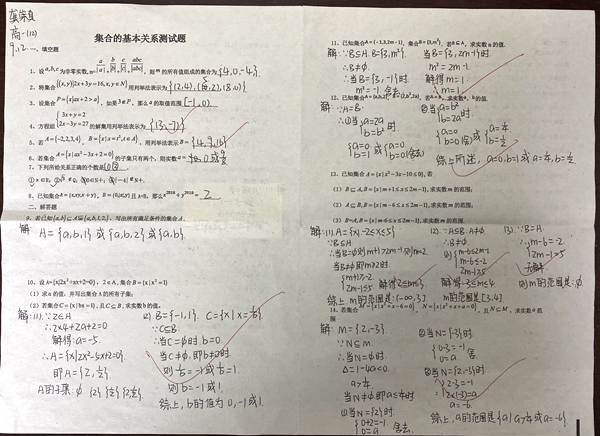 高一(12)
9.2.
集合的基本关系测试题
一、填空题
1. 设a,b,c为非零实数, m= a/|a| + b/|b| + c/|c| + abc/|abc|, 则m的所有值组成的集合为{4,0,-4}.
2. 将集合{(x,y)|2x+3y=16,x,y∈N}用列举法表示为{(2,4),(5,2),(8,0)}
3. 设集合P=
4. 方程组{3x+y=2 2x-3y=27}的解集用列举法表示为{(3,-7)}
5. 若A={-2,2,3,4}, B={x|x=t²,t∈A}, 用列举法表示B={4,9,16}
6. 若集合A={x|ax²-3x+2=0}的子集只有两个, 则实数a=
7. 下列所给关系正确的个数是
8. 已知集合A={x,xy,x+y}, B={0,|x|,y}且A=B, 那么x²⁰¹⁸+y²⁰¹⁸= 2
二、解答题
9. 若已知{a,b}⊆A⊊{a,b,1,2}, 写出所有满足条件的集合A.
解: A={a,b,1}或{a,b,2}或{a,b}.
10. 设A={x|2x²+ax+2=0}, 2∈A, 集合B={x|x²=1}
(1) 求a的值, 并写出集合A的所有子集;
(2) 若集合C={x|bx=1}, 且C⊆B, 求实数b的值.
解: (1). ∵2∈A
∴2×4+2a+2=0
解得: a=-5.
∴A={x|2x²-5x+2=0}
即A={2,½}
A的子集: ∅ {2} {½} {2,½}.
(2). B={-1,1}. C={x|x=1/b}
∵C⊆B.
∴当C=∅时. b=0.
当C≠∅. 即b≠0时.
则1/b=-1或1/b=1.
则b=-1或1
综上, b的值为0,-1或1.
11. 已知集合A={-1,3,2m-1}, 集合B={3,m²}, 若B⊆A, 求实数m的值.
解: ∵B⊆A. B={3,m²}.
∴B≠∅.
当B={3,-1}时.
m²=-1 舍去.
当B={3,2m-1}时.
m²=2m-1.
解得m=1.
∴m=1.
12. 已知集合A={a,b,2}, B={2,b²,2a}, 若A=B, 求实数a、b的值.
解: ∵A=B.
∴①当{a=2a b=b²时.
{a=0 b=1 或{a=0 b=0(舍去)
②当{a=b² b=2a时.
{a=0 b=0(舍)或{a=¼ b=½
综上所述, a=0,b=1或a=¼,b=½.
13. 已知集合A={x|x²-3x-10≤0}, 若
(1) B⊆A, B={x|m+1≤x≤2m-1}, 求实数m的范围;
(2) A⊆B, B={x|m-6≤x≤2m-1}, 求实数m的范围;
(3) B=A, B={x|m-6≤x≤2m-1}, 求实数m的范围.
解: (1). A={x|-2≤x≤5}
∵B⊆A
∴当B=∅则m+1>2m-1则m<2
当B≠∅即m≥2时.
{m+1≥-2 2m-1≤5 解得2≤m≤3
综上, m的范围是(-∞,3]
(2). ∵A⊆B. A≠∅
∴B≠∅.
则{m-6≤2m-1 m-6≤-2 2m-1≥5
解得-3≤m≤4
m的范围是[3,4]
(3). ∵B=A.
∴{m-6=-2 2m-1=5
无解.
则m的范围是: ∅
14. 若集合M={x|x²+x-6=0}, N={x|x²+x+a=0}, 且N⊆M, 求实数a的范围
解: M={2,-3}
∵N⊆M.
∴当N=∅时
Δ=1-4a<0.
a>¼
当N≠∅即a≤¼时
①当N={2}时.
{0+2=-1 0=a. 舍去.
②当N={-3}时
{0-3=-1 0=a. 舍
③当N={2,-3}时.
{2-3=-1 2×(-3)=a
a=-6.
综上, a的范围是{a|a>¼或a=-6}